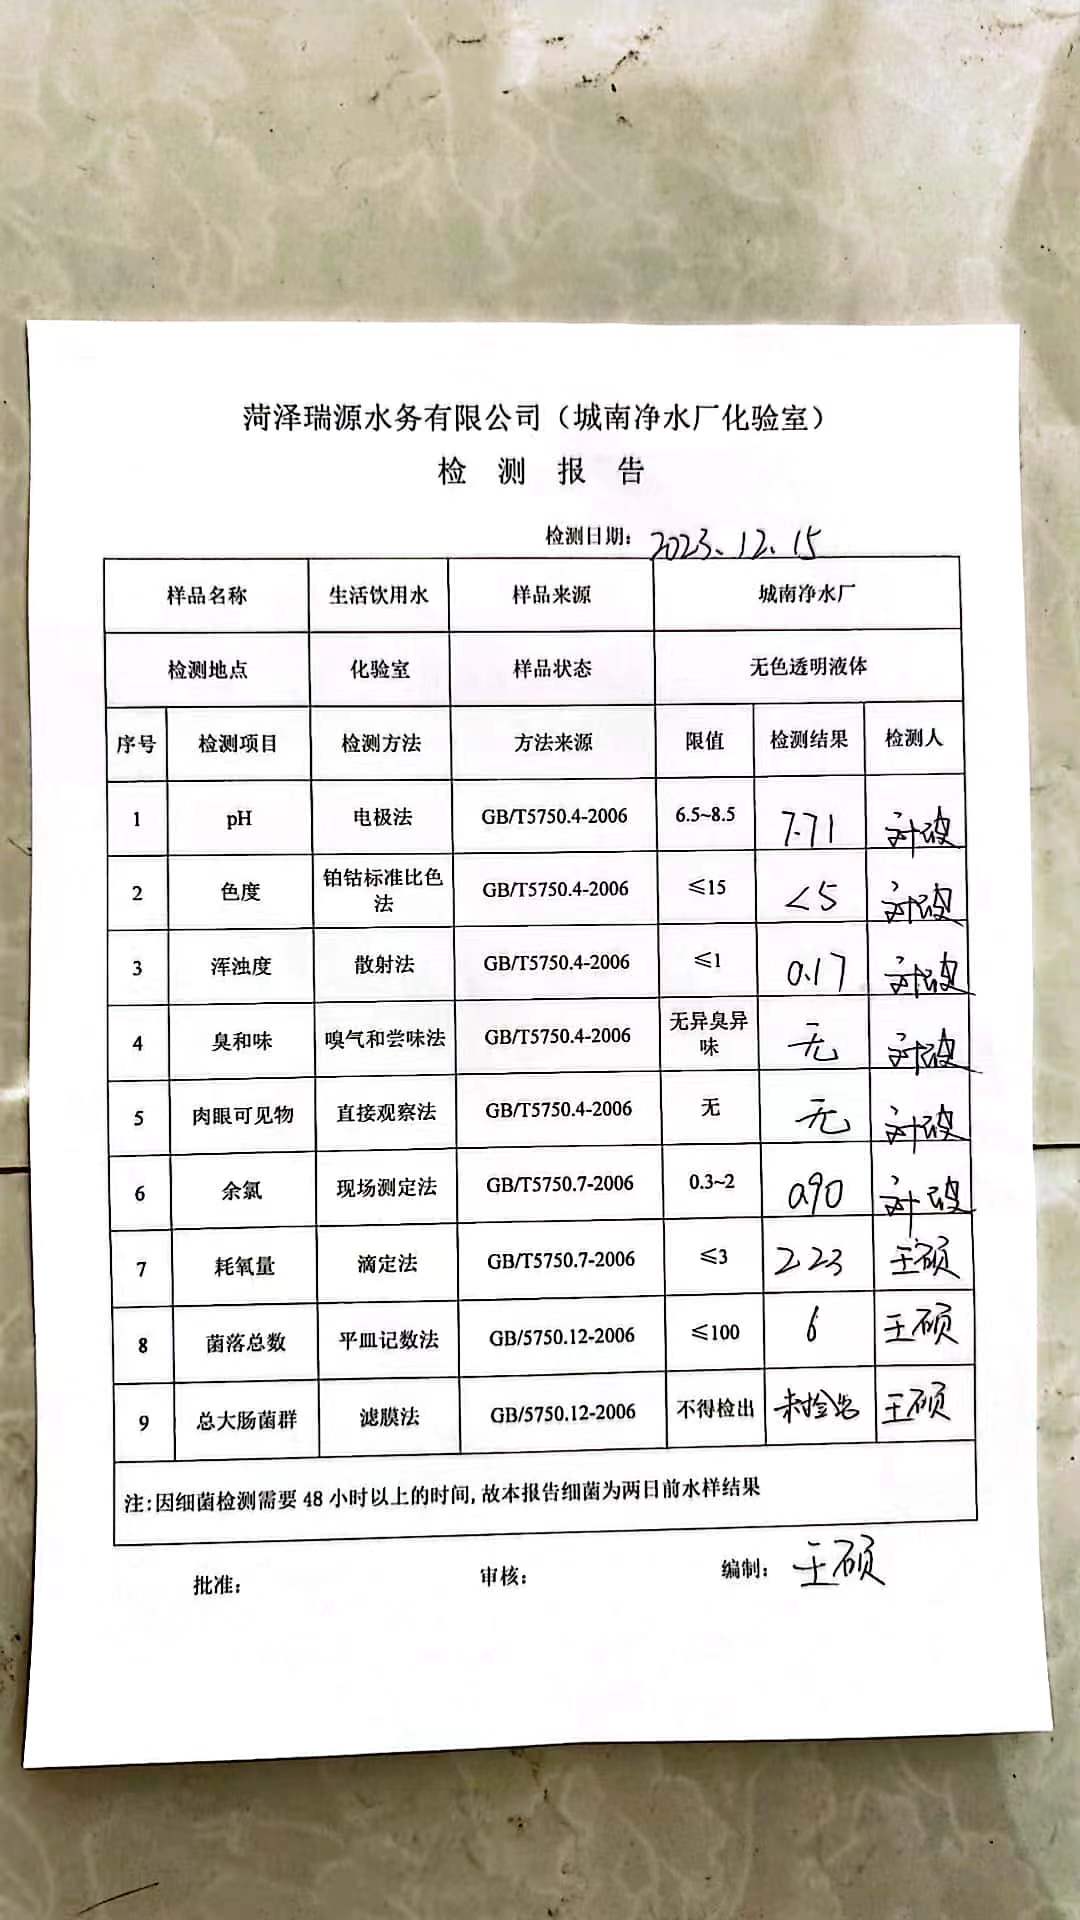 菏泽瑞源水务有限公司（城南净水厂化验室）
检 测 报 告
检测日期: 2023.12.15
样品名称 生活饮用水 样品来源 城南净水厂
检测地点 化验室 样品状态 无色透明液体
序号 检测项目 检测方法 方法来源 限值 检测结果 检测人
1 pH 电极法 GB/T5750.4-2006 6.5~8.5 7.71
2 色度 铂钴标准比色法 GB/T5750.4-2006 ≤15 <5
3 浑浊度 散射法 GB/T5750.4-2006 ≤1 0.17
4 臭和味 嗅气和尝味法 GB/T5750.4-2006 无异臭异味 无
5 肉眼可见物 直接观察法 GB/T5750.4-2006 无 无
6 余氯 现场测定法 GB/T5750.7-2006 0.3~2 0.90
7 耗氧量 滴定法 GB/T5750.7-2006 ≤3 2.23 王硕
8 菌落总数 平皿记数法 GB/5750.12-2006 ≤100 6 王硕
9 总大肠菌群 滤膜法 GB/5750.12-2006 不得检出 未检出 王硕
注:因细菌检测需要 48 小时以上的时间,故本报告细菌为两日前水样结果
批准: 审核: 编制: 王硕